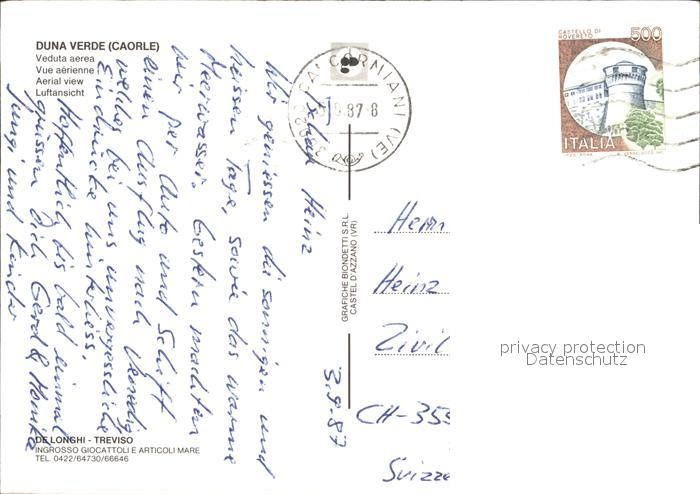 DUNA VERDE (CAORLE)
Veduta aerea
Vue aérienne
Aerial view
Luftansicht
CASTELLO DI
ROVERETO
500
ITALIA
CA' CORNIANI (VE)
9.87-8
3.9.87
Heinz
Wir geniessen die sonnigen und
heissen Tage, sowie das warme
Meerwasser. Gestern machten
wir per Auto und Schiff
einen Ausflug nach Venedig
welches bei uns unvergessliche
Eindrücke hinterliess.
Hoffentlich bis bald einmal
grüssen Dich Gerd & Monika
und Kinder
GRAFICHE BIONDETTI S.R.L.
CASTEL D'AZZANO (VR)
Herrn
Heinz
Zivil
CH-355
Svizze
privacy protection
Datenschutz
DE LONGHI - TREVISO
INGROSSO GIOCATTOLI E ARTICOLI MARE
TEL. 0422/64730/66646